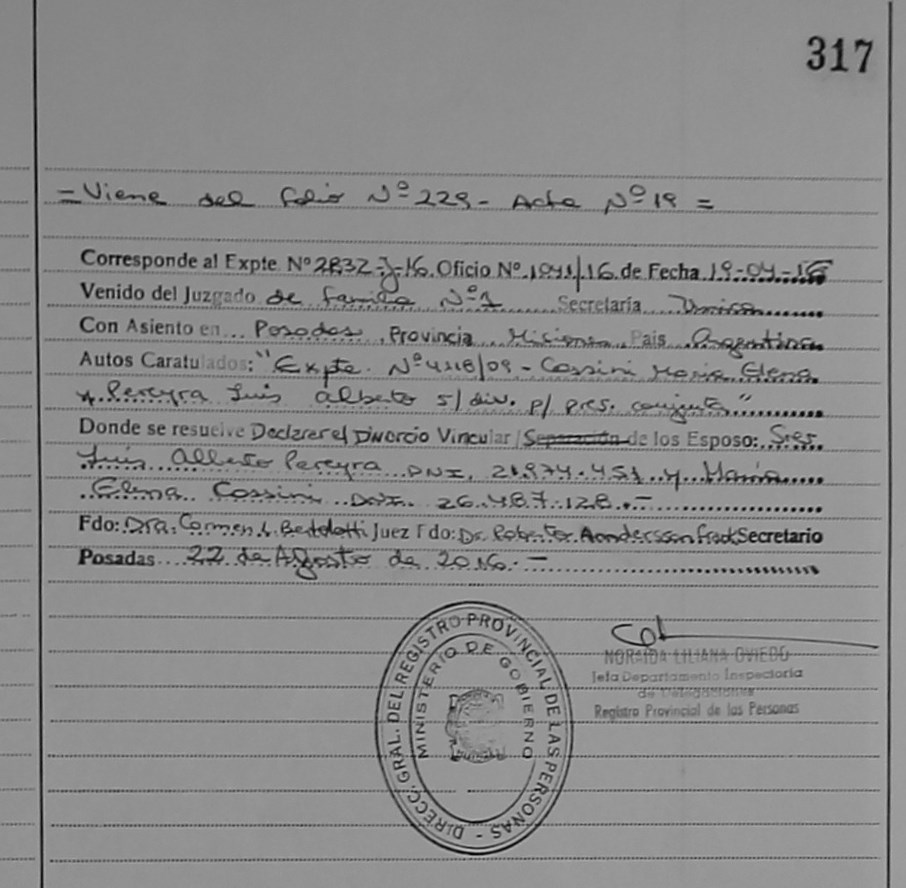 317
= Viene del folio Nº 229 - Acta Nº 19 =
Corresponde al Expte Nº 2832-J-16. Oficio Nº 1041/16 de Fecha 19-04-16
Venido del Juzgado de familia Nº 1 Secretaría Unica
Con Asiento en Posadas, Provincia Misiones Pais Argentina
Autos Caratulados: "Expte. Nº 4218/09 - Cossini Maria Elena
y Pereyra Luis Alberto s/ div. p/ pres. conjunta"
Donde se resuelve Declarar el Divorcio Vincular / Separación de los Esposo: Sres.
Luis Alberto Pereyra DNI. 21.974.451 y María
Elena Cossini DNI. 26.487.128.-
Fdo: Dra. Carmen L. Bertolotti Juez Fdo: Dr. Roberto Aondersson Frack Secretario
Posadas 22 de Agosto de 2016.-
DIRECC. GRAL. DEL REGISTRO PROVINCIAL DE LAS PERSONAS -
MINISTERIO DE GOBIERNO
NORAIDA LILIANA OVIEDO
Jefa Departamento Inspectoria
de Delegaciones
Registro Provincial de las Personas